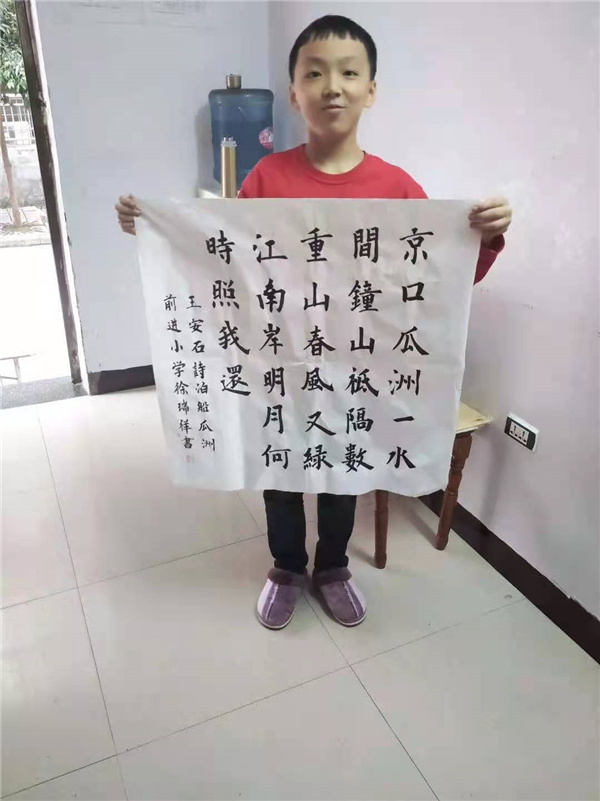 京口瓜洲一水
間鐘山祗隔數
重山春風又緑
江南岸明月何
時照我還
王安石詩泊船瓜洲
前进小学徐瑞祥書